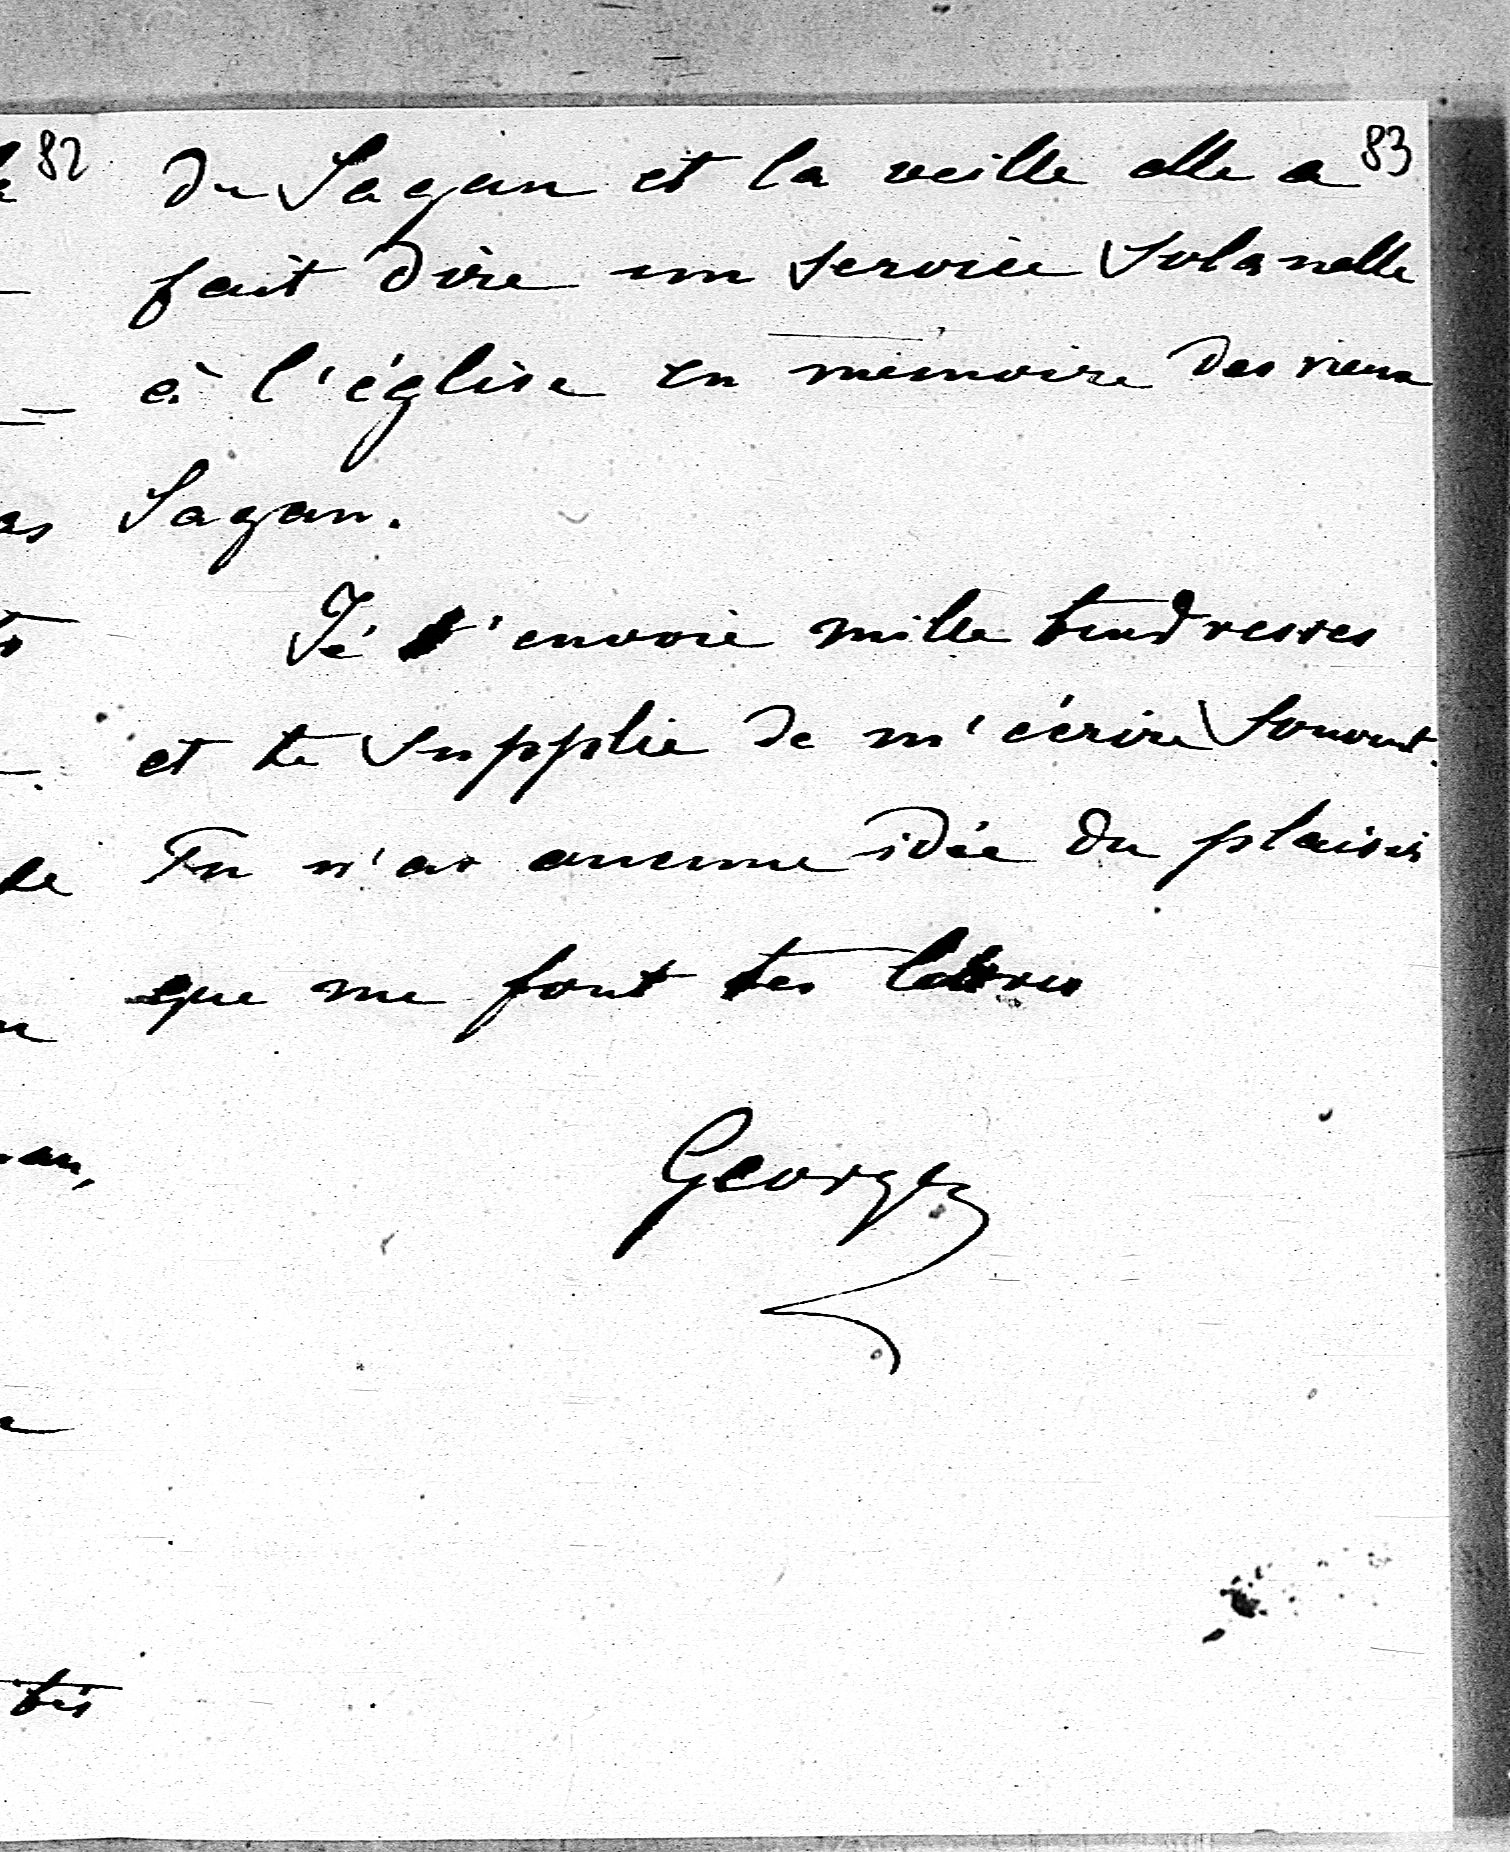 82
83
du Sagan et la veille elle a
fait dire un service solanelle
à l'église en mémoire des vieux
Sagan.
Je t'envoie mille tendresses
et te supplie de m'écrire souvent.
Tu n'as aucune idée du plaisir
que me font tes lettres
Georges